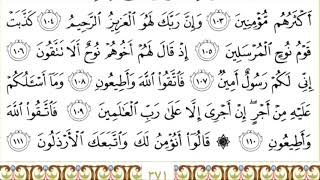 أَكْثَرُهُم مُّؤْمِنِينَ ١٠٣ وَإِنَّ رَبَّكَ لَهُوَ الْعَزِيزُ الرَّحِيمُ ١٠٤ كَذَّبَتْ
قَوْمُ نُوحٍ الْمُرْسَلِينَ ١٠٥ إِذْ قَالَ لَهُمْ أَخُوهُمْ نُوحٌ أَلَا تَتَّقُونَ ١٠٦
إِنِّي لَكُمْ رَسُولٌ أَمِينٌ ١٠٧ فَاتَّقُوا اللَّهَ وَأَطِيعُونِ ١٠٨ وَمَا أَسْأَلُكُمْ
عَلَيْهِ مِنْ أَجْرٍ إِنْ أَجْرِيَ إِلَّا عَلَى رَبِّ الْعَالَمِينَ ١٠٩ فَاتَّقُوا اللَّهَ
وَأَطِيعُونِ ١١٠ ۞ قَالُوا أَنُؤْمِنُ لَكَ وَاتَّبَعَكَ الْأَرْذَلُونَ ١١١
٣٧١